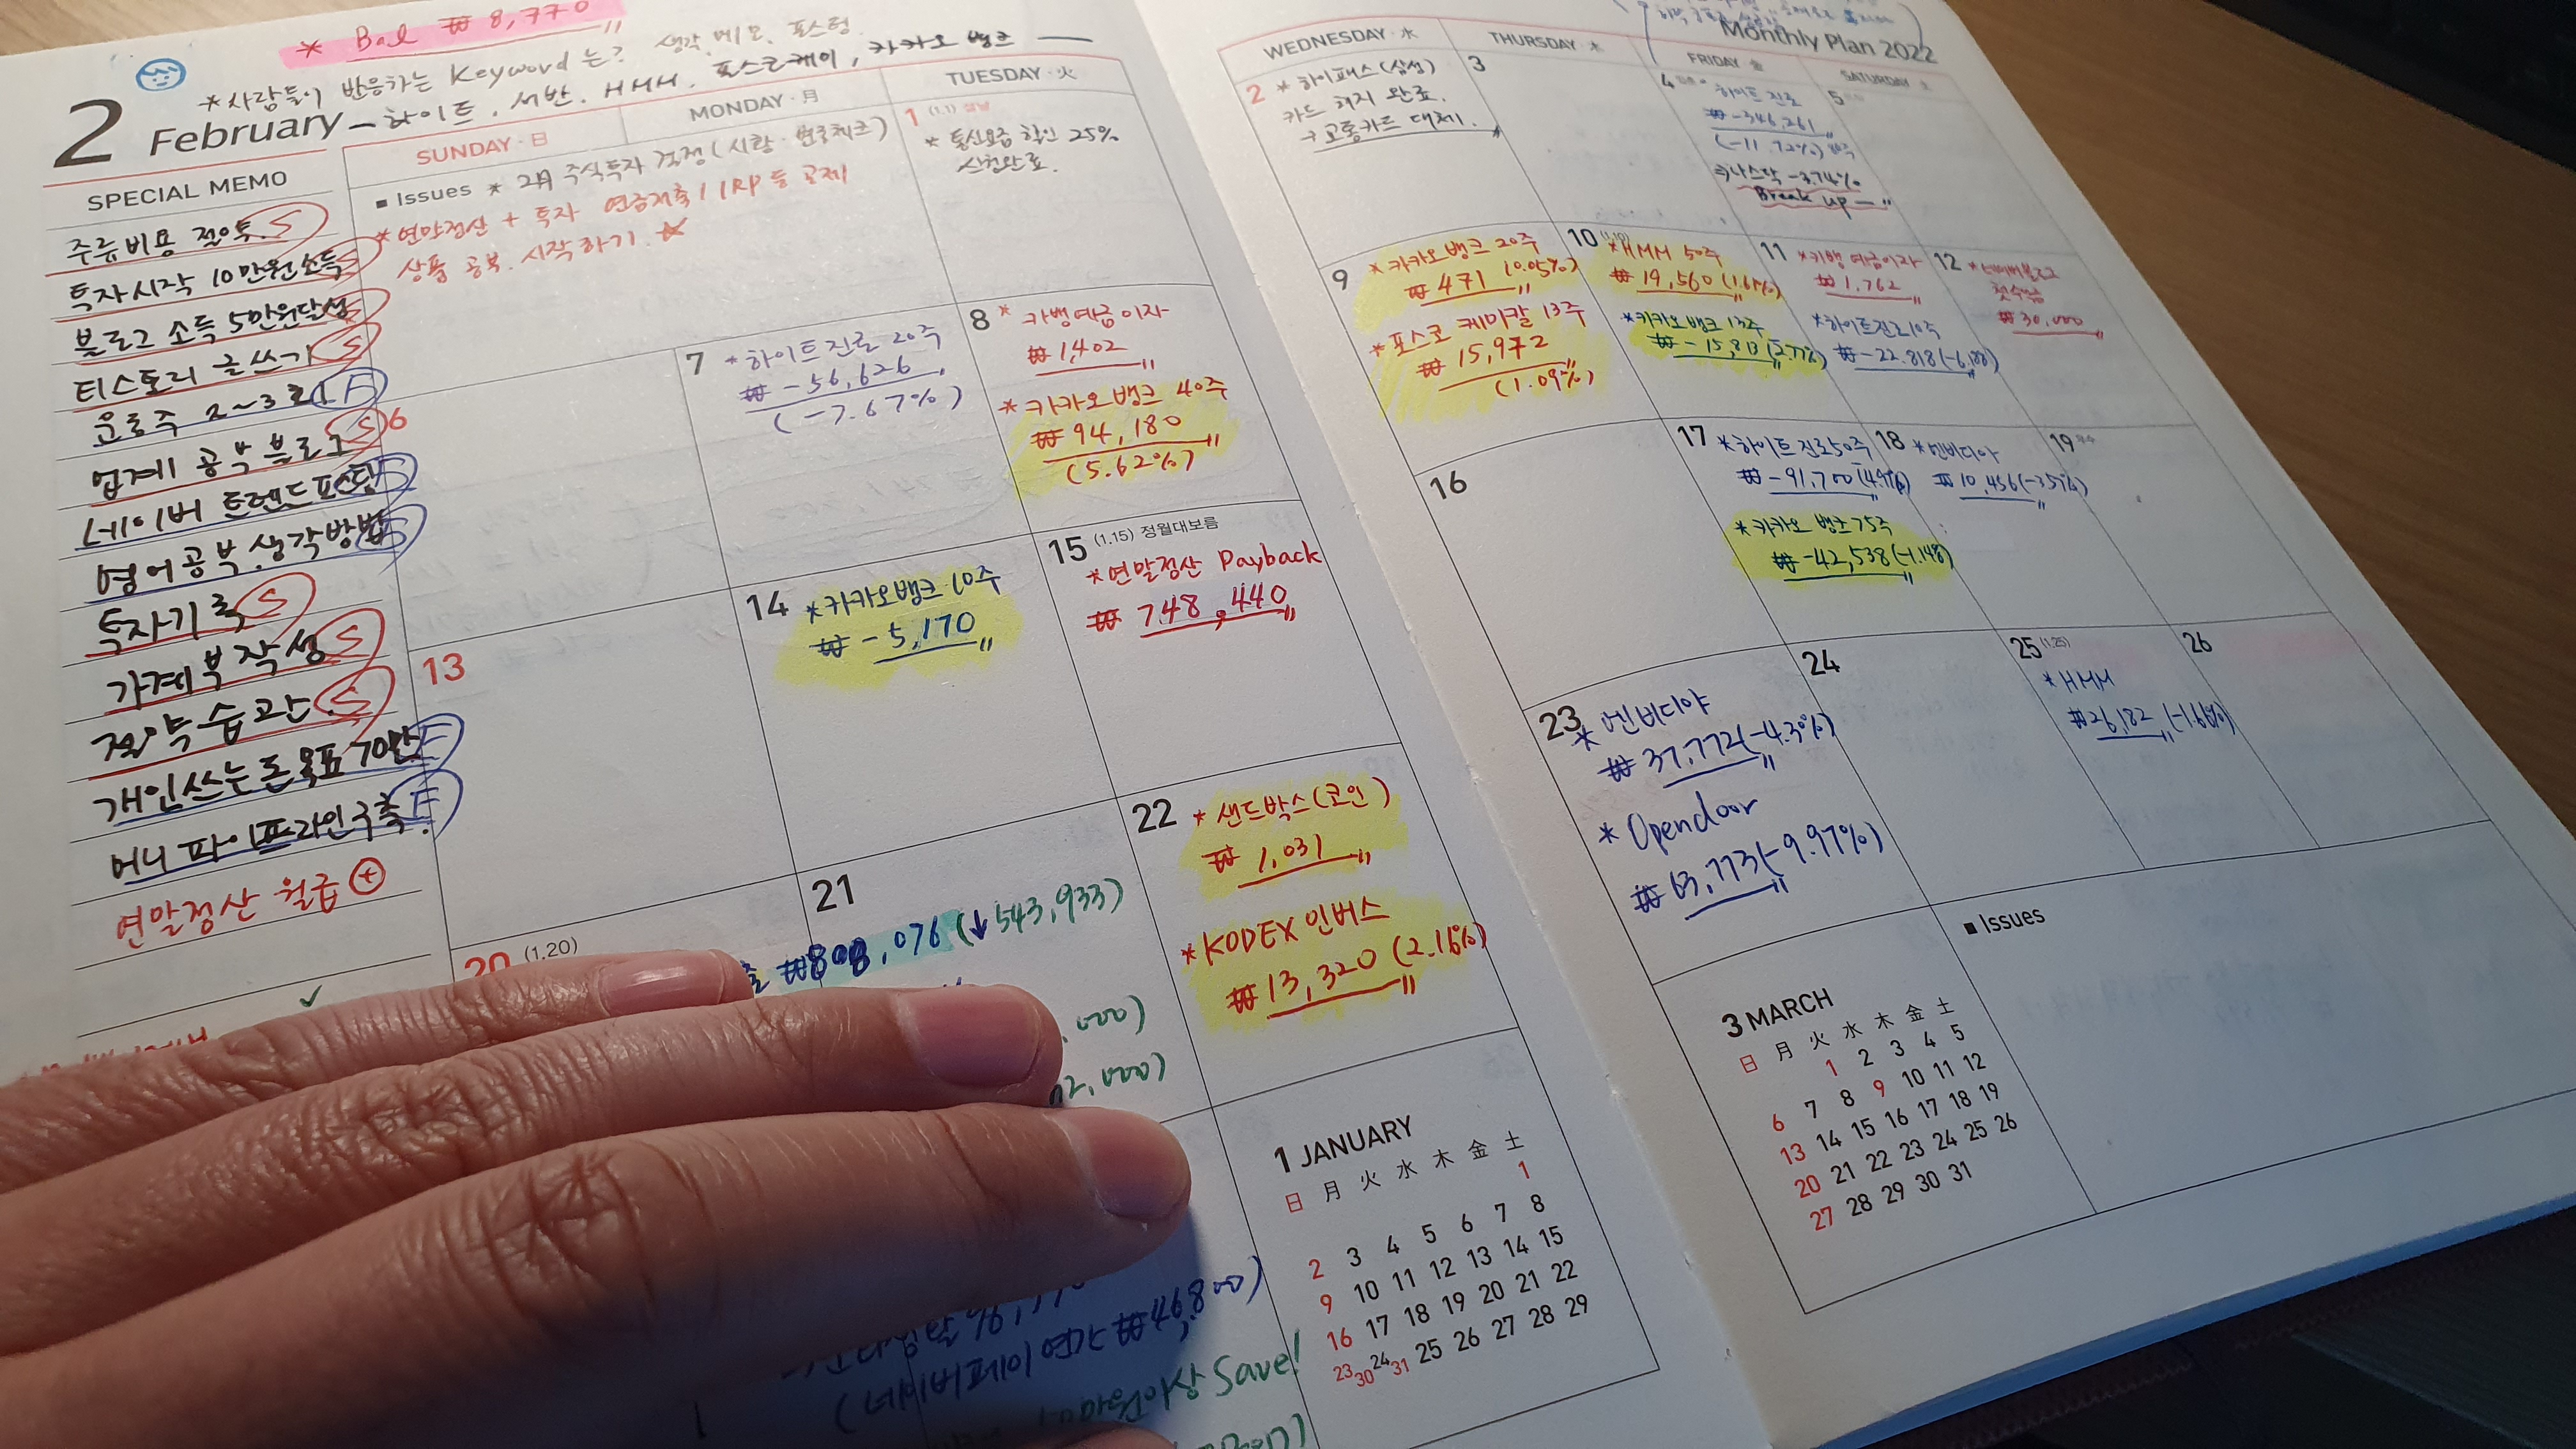 * Bal ₩ 8,770
*사람들이 반응하는 Keyword는? 생각, 메모, 포스팅.
2 February
— 하이트, 서반, HMM, 포스코케미, 카카오 뱅크 —
SPECIAL MEMO
주류비용 절약. S
투자시작 10만원 소득 S
블로그 소득 5만원달성 S
티스토리 글쓰기 S
운동주 2~3회 F
업계1 공부 블로그 S
네이버 트렌드 포스팅
영어공부. 생각방법
투자기록 S
가계부 작성 S
절약 습관 S
개인쓰는 돈 목표 70만 F
머니 파이프라인 구축. F
연말정산 월급 +
SUNDAY · 日
MONDAY · 月
TUESDAY · 火
■ Issues * 2월 주식투자 걱정 (시황 · 변동체크)
*연말정산 + 투자 연금저축 / IRP 등 공제
상품 공부. 시작하기.
1 (1.1) 설날
* 통신요금 할인 25%
신청완료.
6
7
*하이트진로 20주
₩ -56,626
(-7.67%)
8
* 카뱅예금 이자
₩ 1,402
* 카카오뱅크 40주
₩ 94,180
(5.62%)
13
14
*카카오뱅크 10주
₩ -5,170
15 (1.15) 정월대보름
*연말정산 Payback
₩ 748,440
20 (1.20)
21
₩808,076 (↓543,933)
,000)
02,000)
22
* 샌드박스 (코인)
₩ 1,031
* KODEX 인버스
₩ 13,320 (2.16%)
(네이버페이
₩468
이상 Save!
1 JANUARY
日 月 火 水 木 金 土
1
2 3 4 5 6 7 8
9 10 11 12 13 14 15
16 17 18 19 20 21 22
23 30 24 31 25 26 27 28 29
Monthly Plan 2022
WEDNESDAY · 水
THURSDAY · 木
FRIDAY · 金
SATURDAY · 土
2
* 하이패스 (삼성)
카드 해지 완료.
→ 교통카드 대체.
3
4
하이트 진로
₩ -346,261
(-11.72%)
⇒나스닥 -3.74%
Break up —
5
9
* 카카오뱅크 20주
₩ 471 (0.05%)
* 포스코 케미칼 13주
₩ 15,972
(1.09%)
10
*HMM 50주
₩ 19,560
*카카오뱅크 13주
₩ -15,813
11
*카뱅 예금이자
₩ 1,762
*하이트진로10주
₩ -22,818
12
*네이버블로그
첫수익
₩ 30,000
16
17
*하이트진로50주
₩ -91,700
*카카오 뱅크 75주
₩ -42,538
18
*엔비디아
₩ 10,456
19
23
* 엔비디아
₩ 37,772(-4.3%)
* Opendoor
₩ 63,773(-9.97%)
24
25 (1.25)
* HMM
₩26,182
26
■ Issues
3 MARCH
日 月 火 水 木 金 土
1 2 3 4 5
6 7 8 9 10 11 12
13 14 15 16 17 18 19
20 21 22 23 24 25 26
27 28 29 30 31